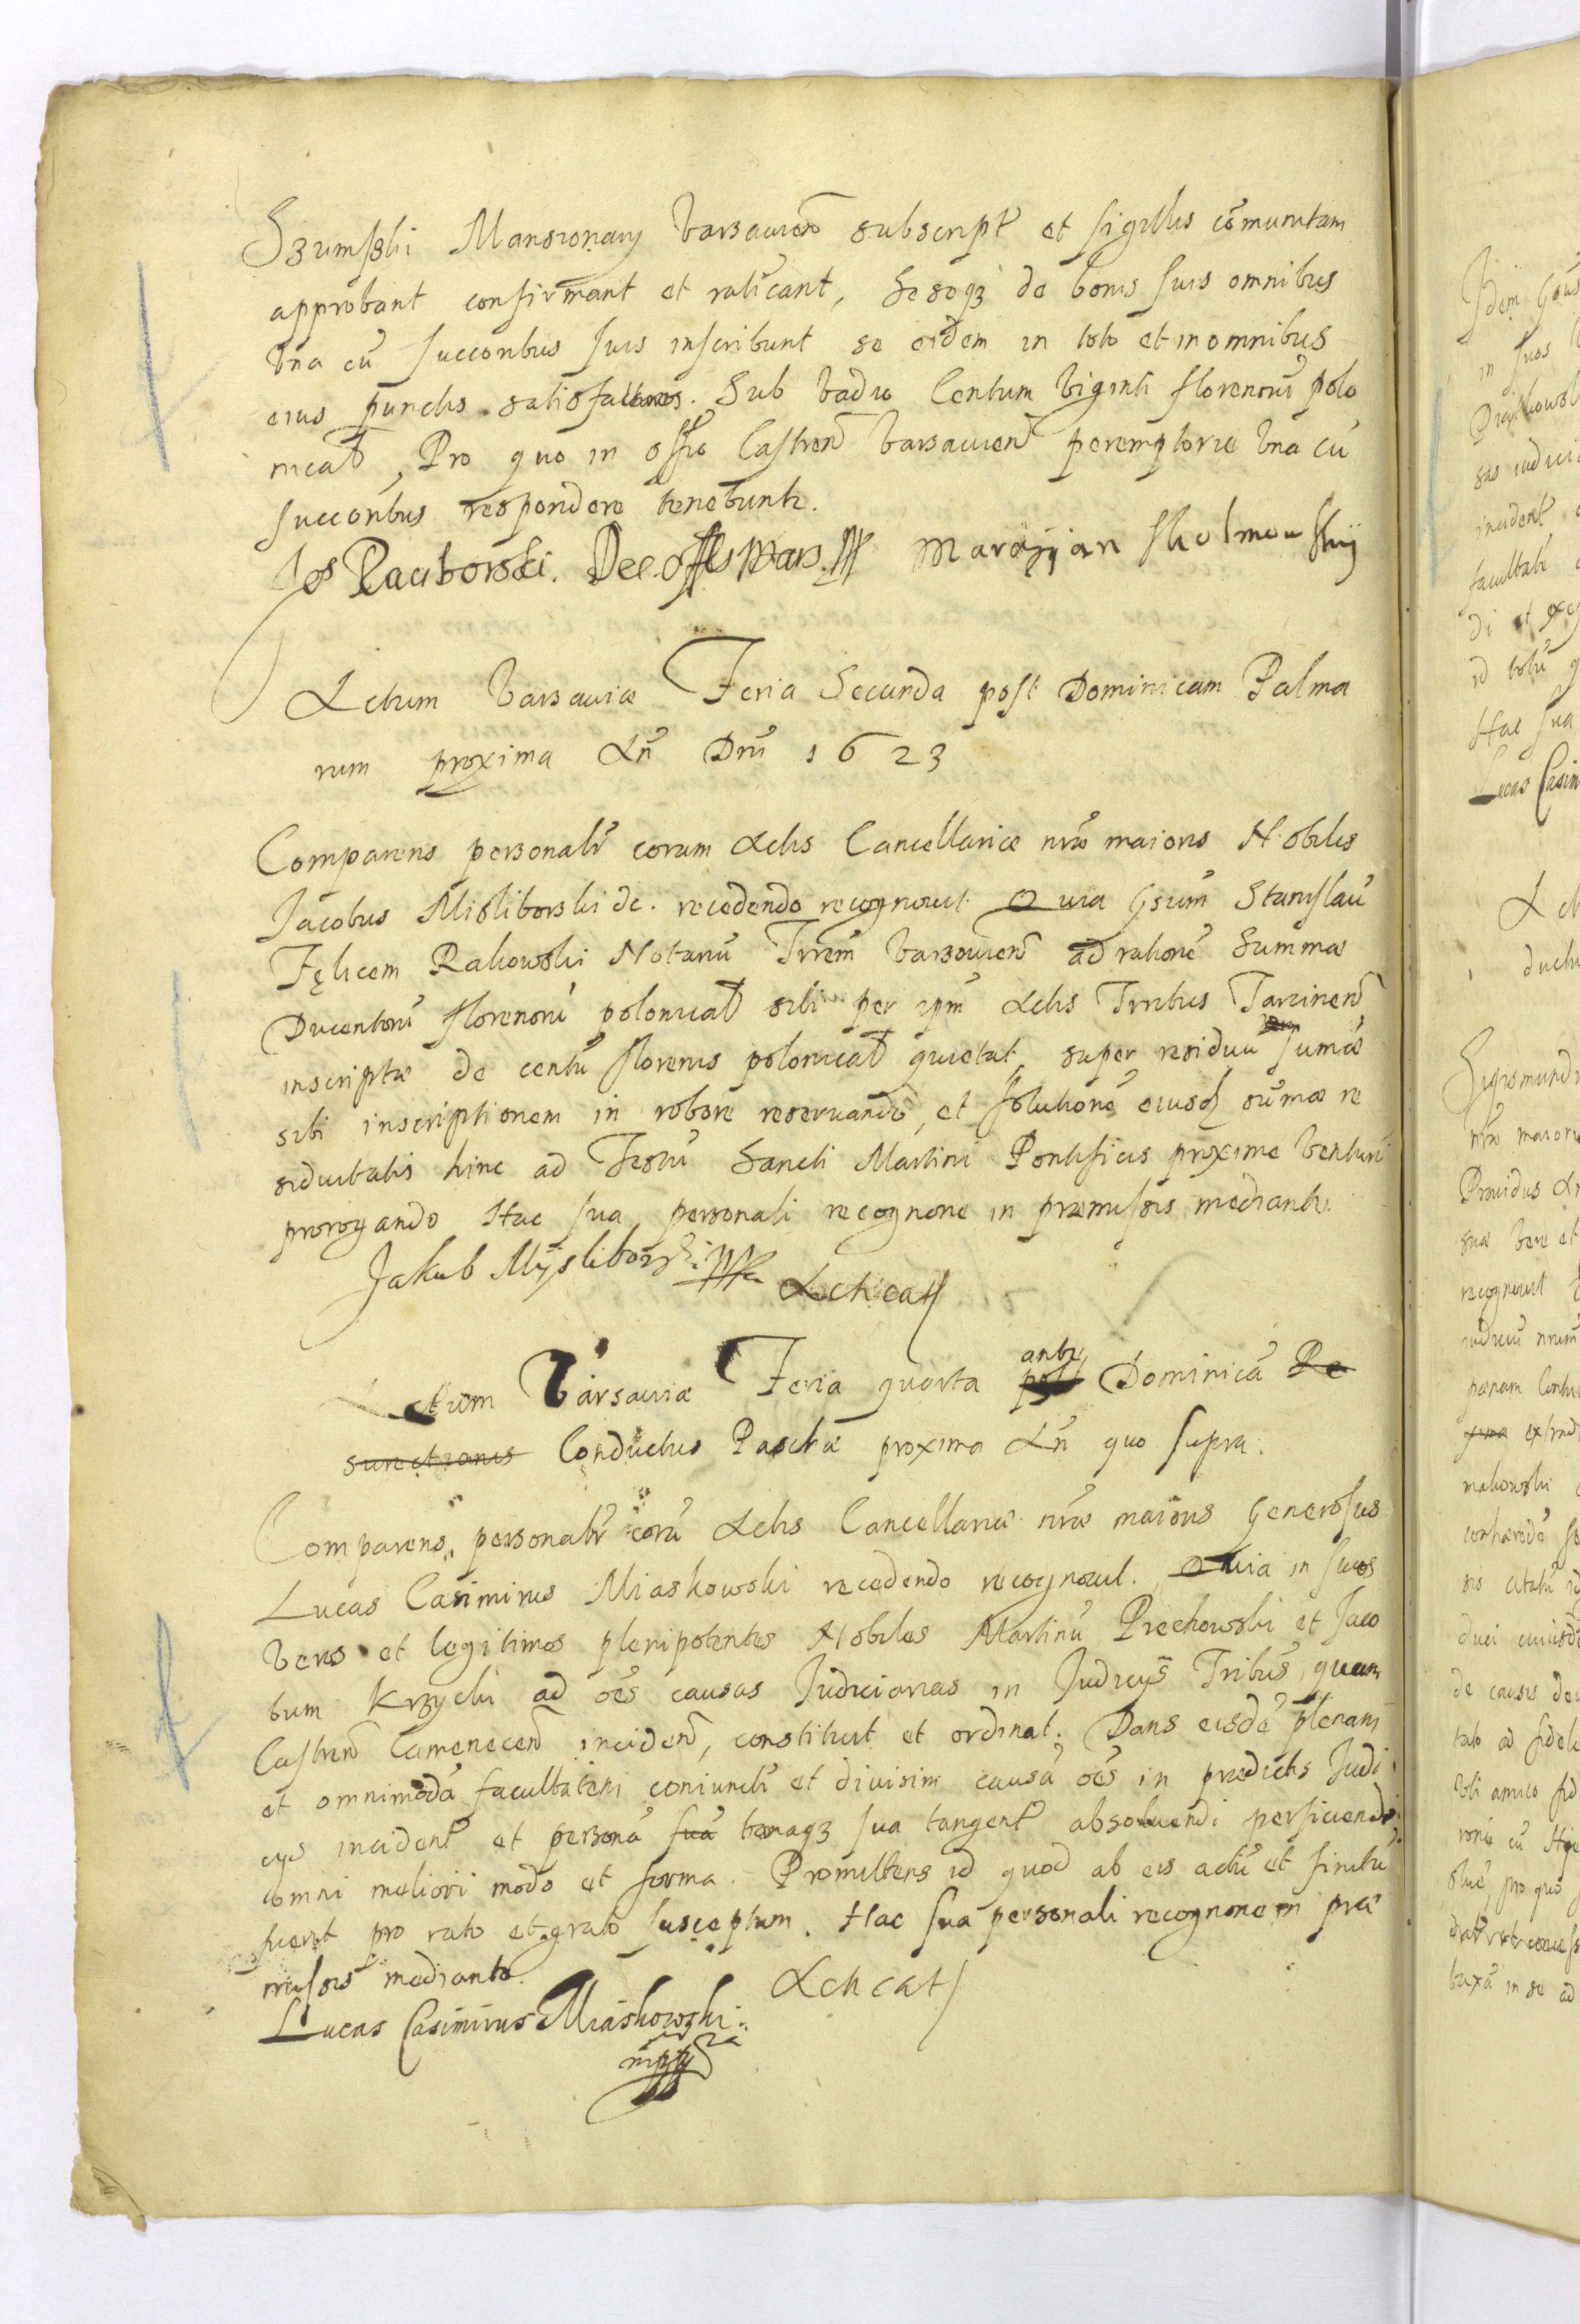 Szumski Mansionarij Varsavien subscript et sigillis cõmunitam
approbant confirmant et ratificant, Seseq de bonis suis omnibus
Vna cũ succoribus suis inscribunt se eidem in toto et in omnibus
eius punctis satisfacturos. Sub vadio Centum Viginti florenorũ polo
nicał, Pro quo in offo Castren Varsavien peremptorie Vna cũ
succoribus respondere tenebuntr.
Jos Raciborski. Marcyjan Skolmowskij
Actum Varsaviæ Feria Secunda post Dominicam Palma
rum proxima Añ Dñi 1623
Comparens personalr coram Actis Cancellariæ nræ maioris Nobilis
Jacobus Misliborski de. recedendo recognovit Quia Gsum Stanislaũ
Fęlicem Rakowski Notariũ Trrem Varsavien ad rationẽ Summæ
Ducentorũ florenorũ polonicał sibi per ipm Actis Trribus Tarcinen
inscriptæ de centũ florenis polonicał quietat, super residuũ sumæ
sibi inscriptionem in robore reservando, et solutionẽ eiusd sũmæ re
siduitatis hinc ad Festũ Sancti Martini Pontificis proxime venturi
prorogando Hac sua personali recognone in præmissis mediante.
Jakub Mysliborski
Actum Varsaviæ Feria quarta post ante Dominicã Re
surectionis Conductus Paschæ proxima Añ quo supra.
Comparens personalr corã Actis Cancellariæ nræ maioris Generosus
Lucas Casimirus Miaskowski recedendo recognovit. Quia in suos
veros et legitimos plenipotentes Nobiles Martinũ Prechowski et Jaco
bum Krzycki ad oẽs causas Judiciarias in Judicijs Tribus quam
Castren Camenecen inciden, constituit et ordinat. Dans eisdẽ plenam
et omnimodã facultatem coniunctĩ et divisim causã oẽs in prædictis Judi
cijs incident et personã suã bonaq sua tangent absoluendi perficiendi
omni meliori modo et forma. Promittens id quod ab eis actũ et finitũ
fuerit pro rato et grato susceptum. Hac sua personali recognone in præ
missis mediante.
Lucas Casimirus Miaskowski
mpp